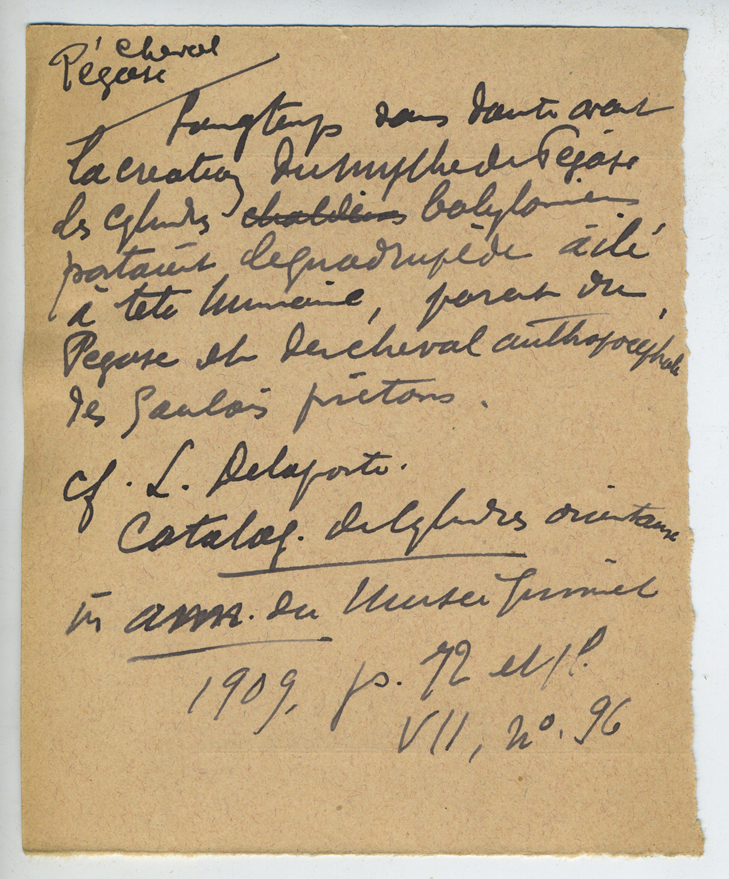 cheval
Pégase
Longtemps sans doute avant
la creation du mythe de Pégase
les cylindres chaldéens babyloniens
portaient le quadrupède ailé
à tete humaine, parent du
Pégase et du cheval anthropocéphale
des Gaulois
cf. L. Delaporte.
Catalog. de Cylindres orientaux
in ann. du Musée Guimet
1909, p. 72 et pl.
VII, no. 96